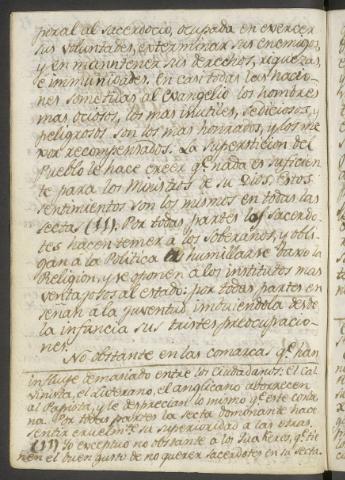 peral al sacerdocio, ocupada en exercer
sus voluntades, exterminar sus enemigos,
y en manntener sus derechos, riquezas,
e immunidades. En casi todas las nacio-
nes sometidas al evangelio los hombres
mas ociosos, los mas inutiles, sediciosos, y
peligrosos son los mas honrados, y los me
xor recompensados. La supersticion del
Pueblo le hace creer q.e nada es suficien
te para los Ministros de su Dios. Estos
sentimientos son los mismos en todas las
sectas (11). Por todas partes los sacerdo-
tes hacen temer à los Soberanos, y obli-
gan à la Politica à humillarse baxo la
Religion, y se oponen à los institutos mas
ventajosos al estado: por todas partes en
señan a la juventud imbuiendola desde
la infancia sus tristes preocupacio-
nes.
No obstante en las comarcas q.e han
influye demasiado entre los Ciudadanos: el Cal
vinista, el Luterano, el anglicano aborrecen
al Papista, y le desprecian lo mismo q.e este
na. Por todas partes la Secta dominante hace
sentir cruelmente su superioridad a las otras.
(11) Yo exceptuo no obstante a los Quakeres, q.e tie
nen el buen gusto de no querer sacerdotes en su secta.